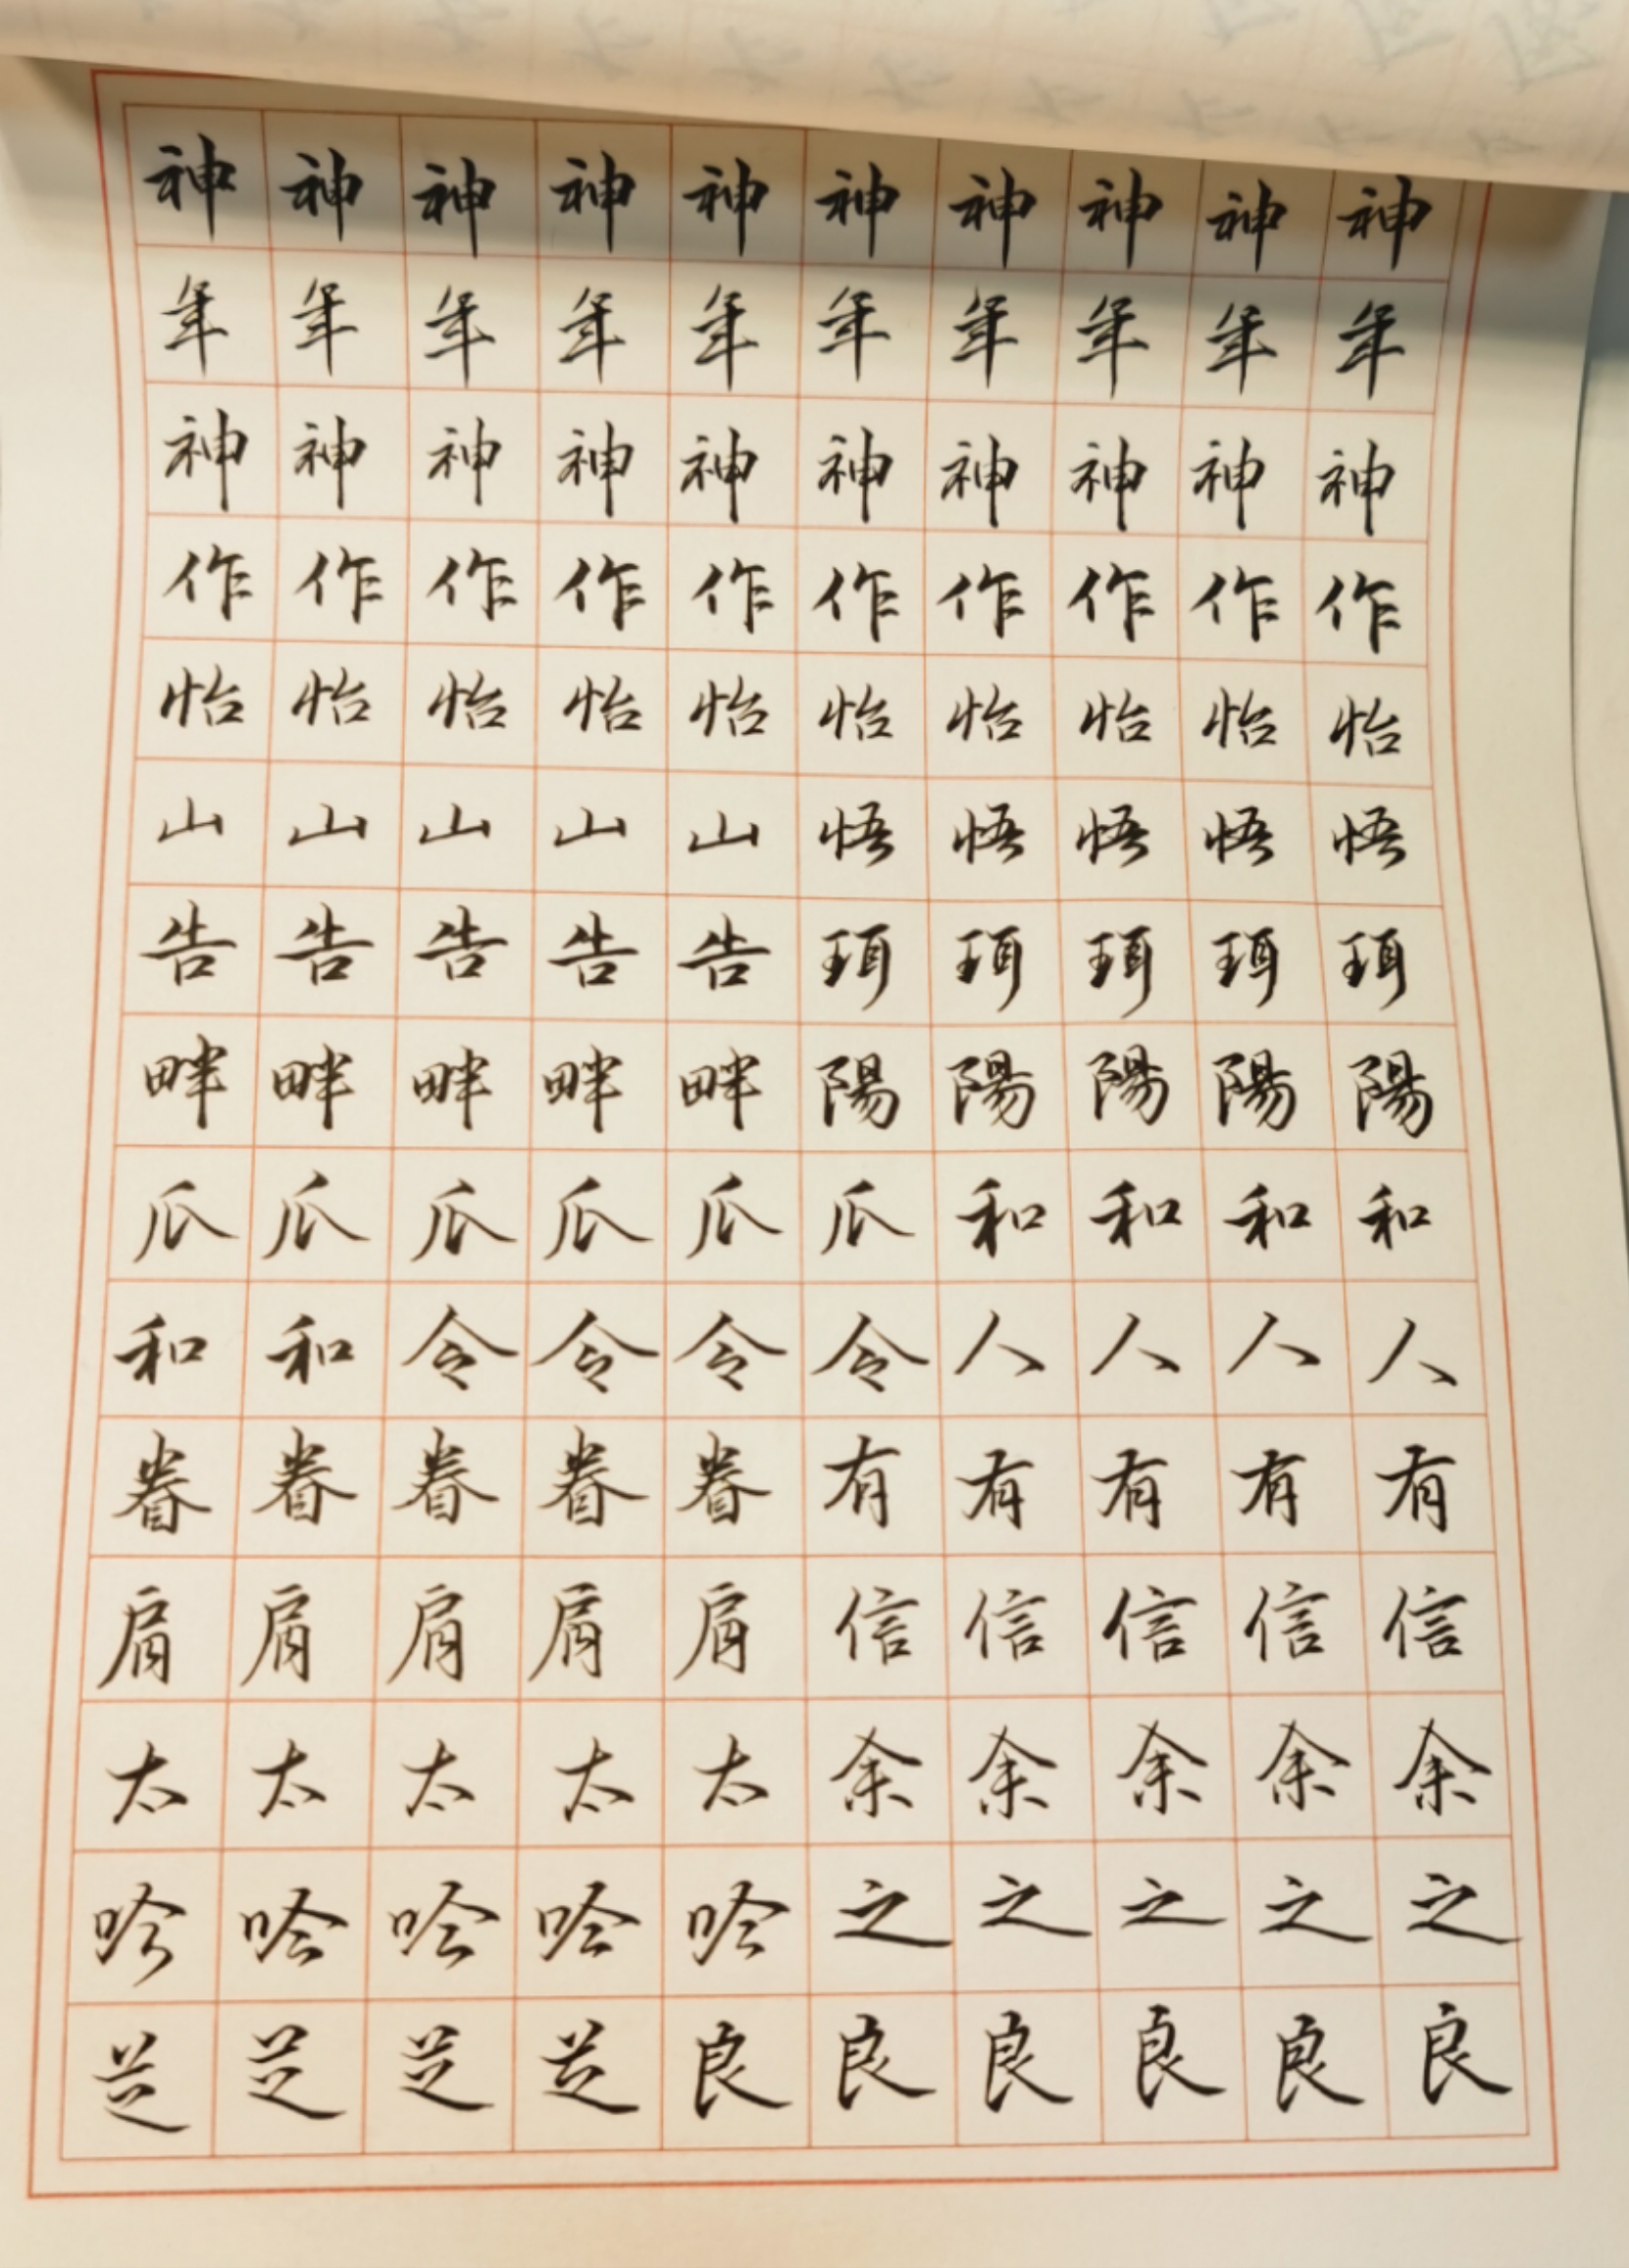 神神神神神神神神神神
年年年年年年年年年年
神神神神神神神神神神
作作作作作作作作作作
怡怡怡怡怡怡怡怡怡怡
山山山山山悟悟悟悟悟
告告告告告珥珥珥珥珥
畔畔畔畔畔陽陽陽陽陽
瓜瓜瓜瓜瓜瓜和和和和
和和令令令令人人人人
眷眷眷眷眷有有有有有
肩肩肩肩肩信信信信信
太太太太太余余余余余
吟吟吟吟吟之之之之之
芝芝芝芝良良良良良良